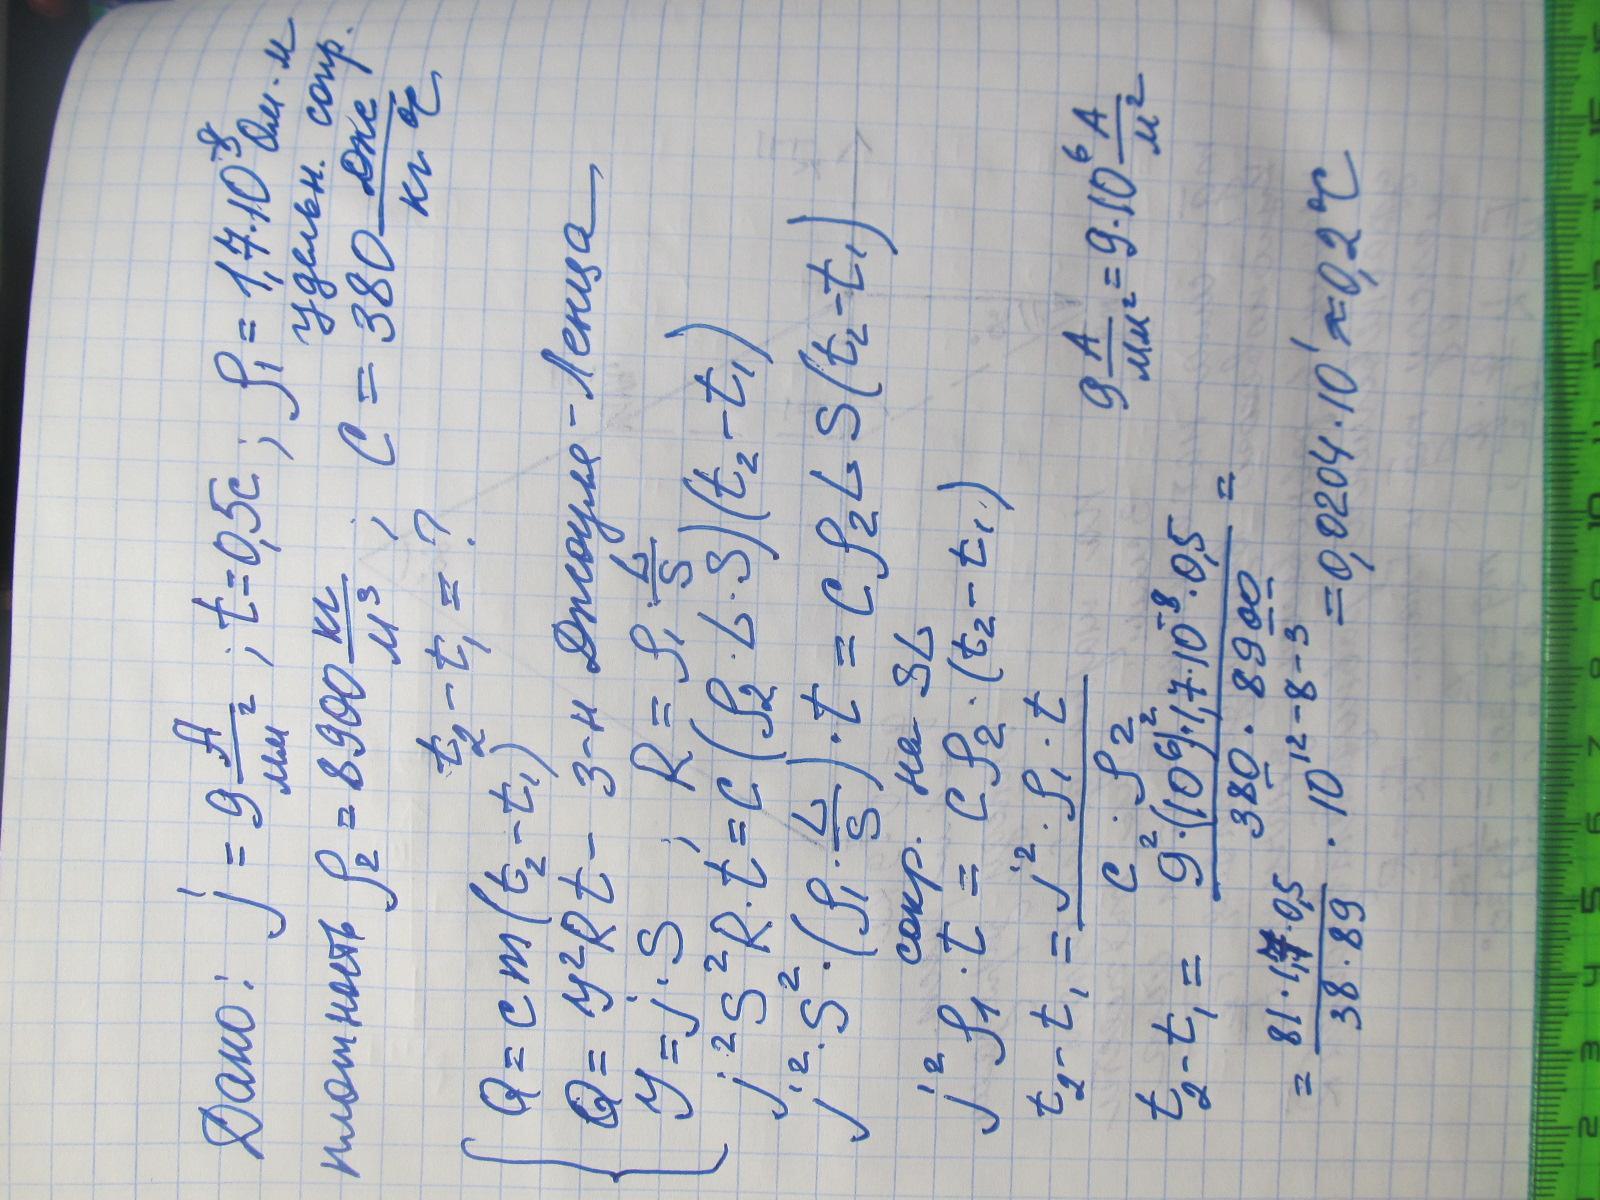 Дано: j = 9 А/мм²; t = 0,5с; ρ₁ = 1,7·10⁻⁸ Ом·м
удельн. сопр.
плотность ρ₂ = 8900 кг/м³; C = 380 Дж/кг °C
t₂ - t₁ = ?
Q = cm(t₂ - t₁)
Q = У²Rt - З-н Джоуля-Ленца
У = j·S; R = ρ₁·L/S
j²S²R·t = c(ρ₂·L·S)(t₂ - t₁)
j²·S²·(ρ₁·L/S)·t = Cρ₂LS(t₂ - t₁)
сокр. на SL
j²ρ₁·t = Cρ₂·(t₂ - t₁)
t₂ - t₁ = j²·ρ₁·t/C·ρ₂
9 А/мм² = 9·10⁶ А/м²
t₂ - t₁ = 9²·(10⁶)²·1,7·10⁻⁸·0,5/380·8900 =
= 81·1,7·0,5/38·89 · 10¹²⁻⁸⁻³ = 0,0204·10¹ ≈ 0,2 °C
2 3 4 5 6 7 8 9 10 11 12 13 14 15 16